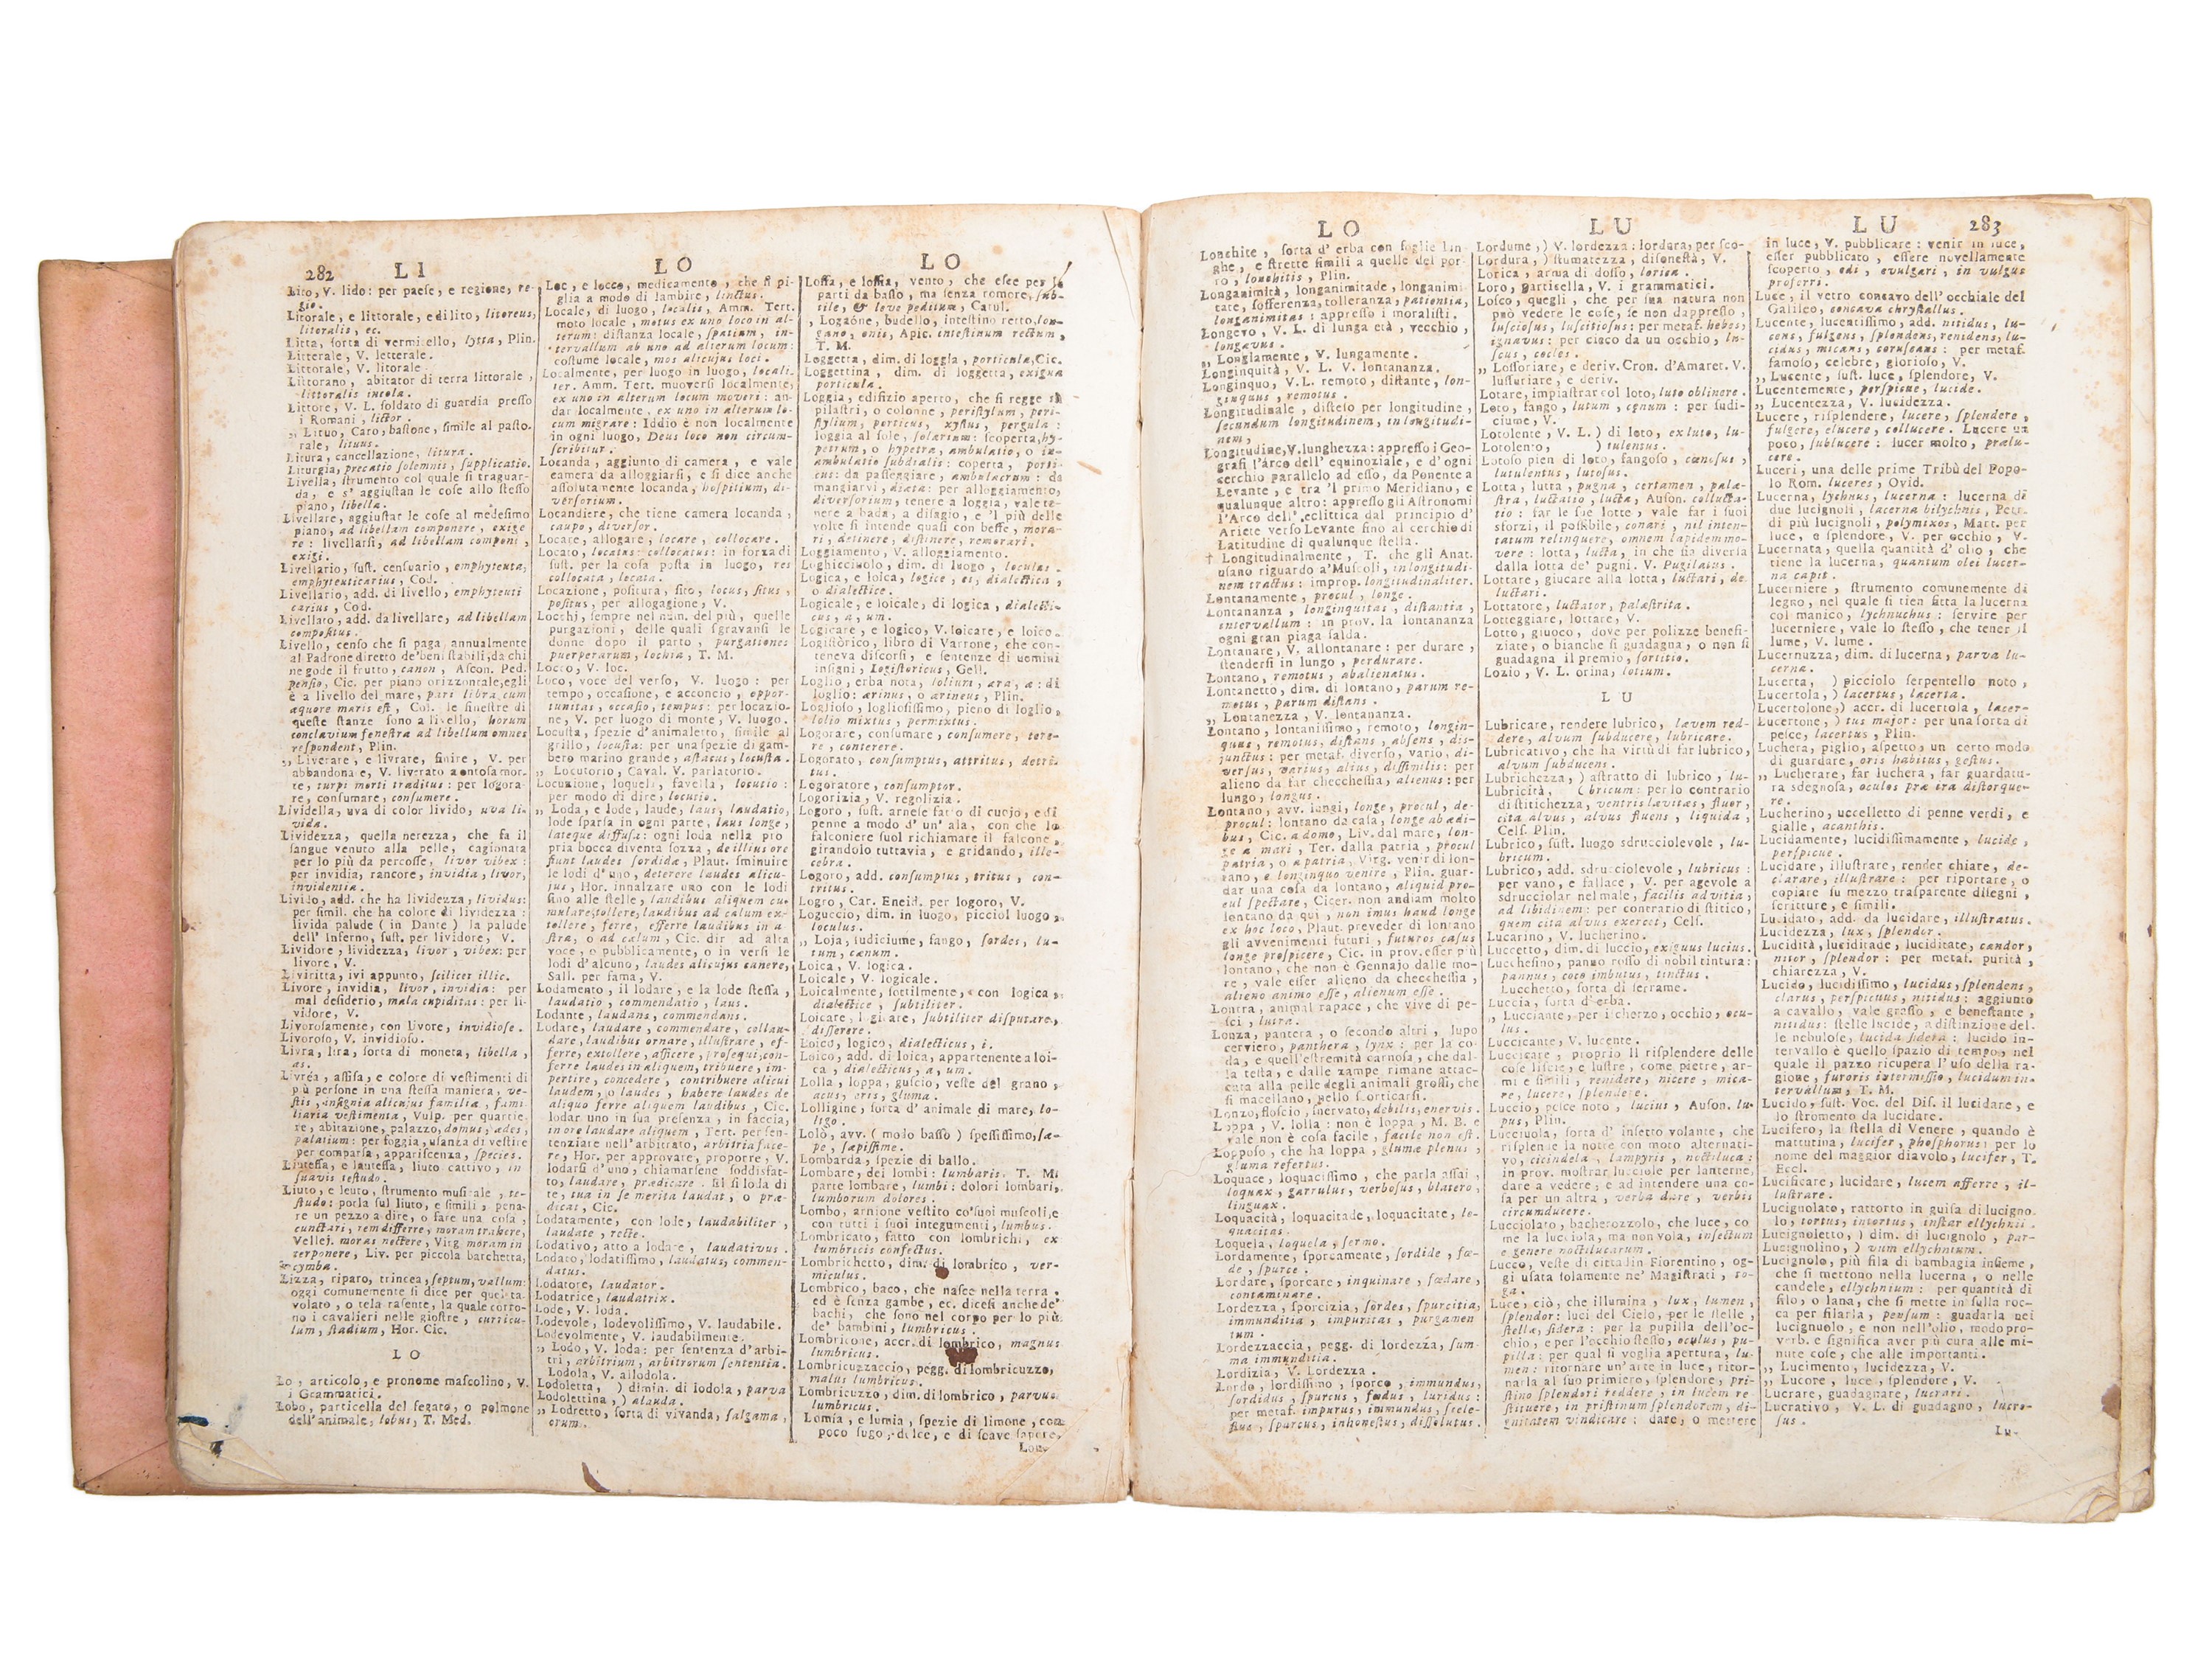 282 LI LO LO
Lito, V. lido: per paeſe, e regione, re-
gio.
Litorale, e littorale, e di lito, litoreus,
litoralis, ec.
Litta, ſorta di vermicello, lytta, Plin.
Litterale, V. letterale.
Littorale, V. litorale.
Littorano, abitator di terra littorale,
littoralis incola.
Littore, V. L. ſoldato di guardia preſſo
i Romani, lictor.
„ Lituo, Caro, baſtone, ſimile al paſto-
rale, lituus.
Litura, cancellazione, litura.
Liturgia, precatio ſolemnis, ſupplicatio.
Livella, ſtrumento col quale ſi traguar-
da, e s' aggiuſtan le coſe allo ſteſſo
piano, libella.
Livellare, aggiuſtar le coſe al medeſimo
piano, ad libellam componere, exige
re: livellarſi, ad libellam componi,
exigi.
Livellario, ſuſt. cenſuario, emphyteuta,
emphyteuticarius, Cod.
Livellario, add. di livello, emphyteuti
carius, Cod.
Livellato, add. da livellare, ad libellam
compoſitus.
Livello, cenſo che ſi paga annualmente
al Padrone diretto de'beni ſtabili, da chi
ne gode il frutto, canon, Aſcon. Ped.
penſio, Cic. per piano orizzontale, egli
è a livello del mare, pari libra cum
æquore maris eſt, Col. le fineſtre di
queſte ſtanze ſono a livello, horum
conclavium feneſtræ ad libellum omnes
reſpondent, Plin.
„ Liverare, e livrare, finire, V. per
abbandonare, V. liverato a ontoſa mor-
te, turpi morti traditus: per logora-
re, conſumare, conſumere.
Lividella, uva di color livido, uva li-
vida.
Lividezza, quella nerezza, che fa il
ſangue venuto alla pelle, cagionata
per lo più da percoſſe, livor vibex:
per invidia, rancore, invidia, livor,
invidentia.
Livido, add. che ha lividezza, lividus:
per ſimil. che ha colore di lividezza:
livida palude (in Dante) la palude
dell' Inferno, ſuſt. per lividore, V.
Lividore, lividezza, livor, vibex: per
livore, V.
Liviritta, ivi appunto, ſcilicet illic.
Livore, invidia, livor, invidia: per
mal deſiderio, mala cupiditas: per li-
vidore, V.
Livoroſamente, con livore, invidioſe.
Livoroſo, V. invidioſo.
Livra, lira, ſorta di moneta, libella,
as.
Livréa, aſſiſa, e colore di veſtimenti di
più perſone in una ſteſſa maniera, ve-
ſtis, inſignia alicujus familiæ, fami
liaria veſtimenta, Vulp. per quartie-
re, abitazione, palazzo, domus, ædes,
palatium: per foggia, uſanza di veſtire
per comparſa, appariſcenza, ſpecies.
Liuteſſa, e lauteſſa, liuto cattivo, in
ſuavis teſtudo.
Liuto, e leuto, ſtrumento muſicale, te-
ſtudo: porla ſul liuto, e ſimili, pena-
re un pezzo a dire, o fare una coſa,
cunctari, rem differre, moram trahere,
Vellej. moras nectere, Virg. moram in
terponere, Liv. per piccola barchetta,
cymba.
Lizza, riparo, trincea, ſeptum, vallum:
oggi comunemente ſi dice per quel ta-
volato, o tela raſente, la quale corro-
no i cavalieri nelle gioſtre, curricu-
lum, ſtadium, Hor. Cic.
LO
Lo, articolo, e pronome maſcolino, V.
i Grammatici.
Lobo, particella del fegato, o polmone
dell'animale, lobus, T. Med.
Loc, e locco, medicamento, che ſi pi-
glia a modo di lambire, linctus.
Locale, di luogo, localis, Amm. Tert.
moto locale, motus ex uno loco in al-
terum: diſtanza locale, ſpatium, in-
tervallum ab uno ad alterum locum:
coſtume locale, mos alicujus loci.
Localmente, per luogo in luogo, locali-
ter. Amm. Tert. muoverſi localmente,
ex uno in alterum locum moveri: an-
dar localmente, ex uno in alterum lo-
cum migrare: Iddio è non localmente
in ogni luogo, Deus loco non circum-
ſcribitur.
Locanda, aggiunto di camera, e vale
camera da alloggiarſi, e ſi dice anche
aſſolutamente locanda, hoſpitium, di-
verſorium.
Locandiere, che tiene camera locanda,
caupo, diverſor.
Locare, allogare, locare, collocare.
Locato, locatus: collocatus: in forza di
ſuſt. per la coſa poſta in luogo, res
collocata, locata.
Locazione, poſitura, ſito, locus, ſitus,
poſitus, per allogagione, V.
Locchj, ſempre nel num. del più, quelle
purgazioni, delle quali ſgravanſi le
donne dopo il parto, purgationes
puerperarum, lochia, T. M.
Locro, V. loc.
Loco, voce del verſo, V. luogo: per
tempo, occaſione, e acconcio, oppor-
tunitas, occaſio, tempus: per locazio-
ne, V. per luogo di monte, V. luogo.
Locuſta, ſpezie d'animaletto, ſimile al
grillo, locuſta: per una ſpezie di gam-
bero marino grande, aſtacus, locuſta.
„ Locutorio, Caval. V. parlatorio.
Locuzione, loquela, favella, locutio:
per modo di dire, locutio.
„ Loda, e lode, laude, laus, laudatio,
lode ſparſa in ogni parte, laus longe,
lateque diffuſa: ogni loda nella pro
pria bocca diventa ſozza, de illius ore
fiunt laudes ſordidæ, Plaut. ſminuire
le lodi d'uno, deterere laudes alicu-
jus, Hor. innalzare uno con le lodi
ſino alle ſtelle, laudibus aliquem cu-
mulare, tollere, laudibus ad cælum ex-
tollere, ferre, efferre laudibus in a
ſtra, o ad cælum, Cic. dir ad alta
voce, o pubblicamente, o in verſi le
lodi d'alcuno, laudes alicujus canere,
Sall. per fama, V.
Lodamento, il lodare, e la lode ſteſſa,
laudatio, commendatio, laus.
Lodante, laudans, commendans.
Lodare, laudare, commendare, collau-
dare, laudibus ornare, illuſtrare, ef-
ferre, extollere, afficere, proſequi, con-
ferre laudes in aliquem, tribuere, im-
pertire, concedere, contribuere alicui
laudem, o laudes, habere laudes de
aliquo ferre aliquem laudibus, Cic.
lodar uno in ſua preſenza, in faccia,
in ore laudare aliquem, Tert. per ſen-
tenziare nell'arbitrato, arbitria face-
re, Hor. per approvare, proporre, V.
lodarſi d'uno, chiamarſene ſoddisfat-
to, laudare, prædicare: sì ſi loda di
te, tua in ſe merita laudat, o præ-
dicat, Cic.
Lodatamente, con lode, laudabiliter,
laudate, recte.
Lodativo, atto a lodare, laudativus.
Lodato, lodatiſſimo, laudatus, commen-
datus.
Lodatore, laudator.
Lodatrice, laudatrix.
Lode, V. loda.
Lodevole, lodevoliſſimo, V. laudabile.
Lodevolmente, V. laudabilmente.
„ Lodo, V. loda: per ſentenza d'arbi-
tri, arbitrium, arbitrorum ſententia.
Lodola, V. allodola.
Lodoletta, ) dimin. di lodola, parva
Lodolettina, ) alauda.
„ Lodretto, ſorta di vivanda, ſalgama,
orum.
Loffa, e loffia, vento, che eſce per le
parti da baſſo, ma ſenza romore, ſub-
tile, & leve peditum, Catul.
, Logaóne, budello, inteſtino retto, lon-
gano, onis, Apic. inteſtinum rectum,
T. M.
Loggetta, dim. di loggia, porticula, Cic.
Loggettina, dim. di loggetta, exigua
porticula.
Loggia, edifizio aperto, che ſi regge ſu
pilaſtri, o colonne, periſtylum, peri-
ſtylium, porticus, xyſtus, pergula:
loggia al ſole, ſolarium: ſcoperta, hy-
pætrum, o hypetra, ambulatio, o in-
ambulatio ſubdialis: coperta, porti-
cus: da paſſeggiare, ambulacrum: da
mangiarvi, diæta: per alloggiamento,
diverſorium, tenere a loggia, vale te-
nere a bada, a diſagio, e 'l più delle
volte ſi intende quaſi con beffe, mora-
ri, detinere, diſtinere, remorari.
Loggiamento, V. alloggiamento.
Loghicciuolo, dim. di luogo, loculus.
Logica, e loica, logice, es, dialectica,
o dialectice.
Logicale, e loicale, di logica, dialecti-
cus, a, um.
Logicare, e logico, V. loicare, e loico.
Logiſtòrico, libro di Varrone, che con-
teneva diſcorſi, e ſentenze di uomini
inſigni, Logiſtoricus, Gell.
Loglio, erba nota, lolium, æra, æ: di
loglio: ærinus, o ærineus, Plin.
Loglioſo, loglioſiſſimo, pieno di loglio,
lolio mixtus, permixtus.
Logorare, conſumare, conſumere, tere-
re, conterere.
Logorato, conſumptus, attritus, detri-
tus.
Logoratore, conſumptor.
Logorizia, V. regolizia.
Logoro, ſuſt. arneſe fatto di cuojo, e di
penne a modo d' un' ala, con che lo
falconiere ſuol richiamare il falcone,
girandolo tuttavia, e gridando, ille-
cebra.
Logoro, add. conſumptus, tritus, con-
tritus.
Logro, Car. Eneid. per logoro, V.
Loguccio, dim. in luogo, picciol luogo,
loculus.
„ Loja, ſudiciume, fango, ſordes, lu-
tum, cænum.
Loica, V. logica.
Loicale, V. logicale.
Loicalmente, ſottilmente, con logica,
dialectice, ſubtiliter.
Loicare, logicare, ſubtiliter diſputare,
diſſerere.
Loico, logico, dialecticus, i.
Loico, add. di loica, appartenente a loi-
ca, dialecticus, a, um.
Lolla, loppa, guſcio, veſte del grano,
acus, eris, gluma.
Lolligine, ſorta d' animale di mare, lo-
ligo.
Lolò, avv. (modo baſſo) ſpeſſiſſimo, ſæ-
pe, ſæpiſſime.
Lombarda, ſpezie di ballo.
Lombare, dei lombi: lumbaris. T. M.
parte lombare, lumbi: dolori lombari,
lumborum dolores.
Lombo, arnione veſtito co'ſuoi muſcoli, e
con tutti i ſuoi integumenti, lumbus.
Lombricato, fatto con lombrichi, ex
lumbricis confectus.
Lombrichetto, dim. di lombrico, ver-
miculus.
Lombrico, baco, che naſce nella terra,
ed è ſenza gambe, ec. diceſi anche de'
bachi, che ſono nel corpo per lo più
de' bambini, lumbricus.
Lombricone, accr. di lombrico, magnus
lumbricus.
Lombricuzzaccio, pegg. di lombricuzzo,
malus lumbricus.
Lombricuzzo, dim. di lombrico, parvus
lumbricus.
Lomía, e lumía, ſpezie di limone, con
poco ſugo, dolce, e di ſoave ſapore,
Lon-
LO LU LU 283
Lonchite, ſorta d' erba con foglie lun-
ghe, e ſtrette ſimili a quelle del por-
ro, lonchitis, Plin.
Longanimità, longanimitade, longanimi-
tate, ſofferenza, tolleranza, patientia,
longanimitas: appreſſo i moraliſti.
Longevo, V. L. di lunga età, vecchio,
longævus.
„ Longiamente, V. lungamente.
Longinquità, V. L. V. lontananza.
Longinquo, V.L. remoto, diſtante, lon-
ginquus, remotus.
Longitudinale, diſteſo per longitudine,
ſecundum longitudinem, in longitudi-
nem.
Longitudine, V. lunghezza: appreſſo i Geo-
grafi l'àrco dell' equinoziale, e d' ogni
cerchio parallelo ad eſſo, da Ponente a
Levante, e tra 'l primo Meridiano, e
qualunque altro: appreſſo gli Aſtronomi
l'Arco dell' ecclittica dal principio d'
Ariete verſo Levante ſino al cerchio di
Latitudine di qualunque ſtella.
† Longitudinalmente, T. che gli Anat.
uſano riguardo a'Muſcoli, in longitudi-
nem tractus: improp. longitudinaliter.
Lontanamente, procul, longe.
Lontananza, longinquitas, diſtantia,
intervallum: in prov. la lontananza
ogni gran piaga ſalda.
Lontanare, V. allontanare: per durare,
ſtenderſi in lungo, perdurare.
Lontano, remotus, abalienatus.
Lontanetto, dim. di lontano, parum re-
motus, parum diſtans.
„ Lontanezza, V. lontananza.
Lontano, lontaniſſimo, remoto, longin-
quus, remotus, diſtans, abſens, diſ-
junctus: per metaf. diverſo, vario, di-
verſus, varius, alius, diſſimilis: per
alieno da far checcheſſia, alienus: per
lungo, longus.
Lontano, avv. lungi, longe, procul, de-
procul: lontano da caſa, longe ab ædi-
bus, Cic. a domo, Liv. dal mare, lon-
ge a mari, Ter. dalla patria, procul
patria, o a patria, Virg. venir di lon-
tano, e longinquo venire, Plin. guar-
dar una coſa da lontano, aliquid pro-
cul ſpectare, Cicer. non andiam molto
lontano da qui, non imus haud longe
ex hoc loco, Plaut. preveder di lontano
gli avvenimenti futuri, futuros caſus
longe proſpicere, Cic. in prov. eſſer più
lontano, che non è Gennajo dalle mo-
re, vale eſſer alieno da checcheſſia,
alieno animo eſſe, alienum eſſe.
Lontra, animal rapace, che vive di pe-
ſci, lutra.
Lonza, pantera, o ſecondo altri, lupo
cerviero, panthera, lynx: per la co-
da, e quell'eſtremità carnoſa, che dal-
la teſta, e dalle zampe rimane attac-
cata alla pelle degli animali groſſi, che
ſi macellano, nello ſcorticarſi.
Lonzo, floſcio, ſnervato, debilis, enervis.
Loppa, V. lolla: non è loppa, M. B. e
vale non è coſa facile, facile non eſt.
Loppoſo, che ha loppa, glumæ plenus,
gluma refertus.
Loquace, loquaciſſimo, che parla aſſai,
loquax, garrulus, verboſus, blatero,
linguax.
Loquacità, loquacitade, loquacitate, lo-
quacitas.
Loquela, loquela, ſermo.
Lordamente, ſporcamente, ſordide, fœ-
de, ſpurce.
Lordare, ſporcare, inquinare, fœdare,
contaminare.
Lordezza, ſporcizia, ſordes, ſpurcitia,
immunditia, impuritas, purgamen
tum.
Lordezzaccia, pegg. di lordezza, ſum-
ma immunditia.
Lordizia, V. Lordezza.
Lordo, lordiſſimo, ſporco, immundus,
ſordidus, ſpurcus, fœdus, luridus:
per metaf. impurus, immundus, ſcele-
ſtus, ſpurcus, inhoneſtus, diſſolutus.
Lordume, ) V. lordezza: lordura, per ſco-
Lordura, ) ſtumatezza, diſoneſtà, V.
Lorica, arma di doſſo, lorica.
Loro, particella, V. i grammatici.
Loſco, quegli, che per ſua natura non
può vedere le coſe, ſe non dappreſſo,
luſcioſus, luſcitioſus: per metaf. hebes,
ignavus: per cieco da un occhio, lu-
ſcus, cocles.
„ Loſſoriare, e deriv. Cron. d'Amaret. V.
luſſuriare, e deriv.
Lotare, impiaſtrar col loto, luto oblinere.
Loto, fango, lutum, cœnum: per ſudi-
ciume, V.
Lotolente, V. L.) di loto, ex luto, lu-
Lotolento, ) tulentus.
Lotoſo pien di loto, fangoſo, cœnoſus,
lutulentus, lutoſus.
Lotta, lutta, pugna, certamen, palæ-
ſtra, luctatio, lucta, Auſon. collucta-
tio: far le ſue lotte, vale far i ſuoi
sforzi, il poſſibile, conari, nil inten-
tatum relinquere, omnem lapidem mo-
vere: lotta, lucta, in che ſia diverſa
dalla lotta de' pugni. V. Pugilatus.
Lottare, giucare alla lotta, luctari, de-
luctari.
Lottatore, luctator, palæſtrita.
Lotteggiare, lottare, V.
Lotto, giuoco, dove per polizze benefi-
ziate, o bianche ſi guadagna, o non ſi
guadagna il premio, ſortitio.
Lozio, V. L. orina, lotium.
LU
Lubricare, rendere lubrico, lævem red-
dere, alvum ſubducere, lubricare.
Lubricativo, che ha virtù di far lubrico,
alvum ſubducens.
Lubrichezza, ) aſtratto di lubrico, lu-
Lubricità, ( bricum: per lo contrario
di ſtitichezza, ventris lævitas, fluor,
cita alvus, alvus fluens, liquida,
Celſ. Plin.
Lubrico, ſuſt. luogo sdrucciolevole, lu-
bricum.
Lubrico, add. sdrucciolevole, lubricus:
per vano, e fallace, V. per agevole a
sdrucciolar nel male, facilis ad vitia,
ad libidinem: per contrario di ſtitico,
quem cita alvus exercet, Celſ.
Lucarino, V. lucherino.
Luccetto, dim. di luccio, exiguus lucius.
Luccheſino, panno roſſo di nobil tintura:
pannus, coco imbutus, tinctus.
Lucchetto, ſorta di ſerrame.
Luccia, ſorta d'erba.
„ Lucciante, per iſcherzo, occhio, ocu-
lus.
Luccicante, V. lucente.
Luccicare, proprio il riſplendere delle
coſe liſcie, e luſtre, come pietre, ar-
mi e ſimili, renidere, nicere, mica-
re, lucere, ſplendere.
Luccio, peſce noto, lucius, Auſon. lu-
pus, Plin.
Lucciuola, ſorta d' inſetto volante, che
riſplende la notte con moto alternati-
vo, cicindela, lampyris, noctiluca:
in prov. moſtrar lucciole per lanterne,
dare a vedere, e ad intendere una co-
ſa per un altra, verba dare, verbis
circumducere.
Lucciolato, bacherozzolo, che luce, co
me la lucciola, ma non vola, inſectum
e genere noctilucarum.
Lucco, veſte di cittadin Fiorentino, og-
gi uſata ſolamente ne' Magiſtrati, to-
ga.
Luce, ciò, che illumina, lux, lumen,
ſplendor: luci del Cielo, per le ſtelle,
ſtellæ, ſidera: per la pupilla dell'oc-
chio, e per l'occhio ſteſſo, oculus, pu-
pilla: per qual ſi voglia apertura, lu-
men: ritornare un'arte in luce, ritor-
narla al ſuo primiero, ſplendore, pri-
ſtino ſplendori reddere, in lucem re-
ſtituere, in priſtinum ſplendorem, di-
gnitatem vindicare: dare, o mettere
in luce, V. pubblicare: venir in luce,
eſſer pubblicato, eſſere novellamente
ſcoperto, edi, evulgari, in vulgus
proferri.
Luce, il vetro concavo dell'occhiale del
Galileo, concava chryſtallus.
Lucente, lucentiſſimo, add. nitidus, lu-
cens, fulgens, ſplendens, renidens, lu-
cidus, micans, coruſcans: per metaf.
famoſo, celebre, glorioſo, V.
„ Lucente, ſuſt. luce, ſplendore, V.
Lucentemente, perſpicue, lucide.
„ Lucentezza, V. lucidezza.
Lucere, riſplendere, lucere, ſplendere,
fulgere, elucere, collucere. Lucere un
poco, ſublucere: lucer molto, prælu-
cere.
Luceri, una delle prime Tribù del Popo-
lo Rom. luceres, Ovid.
Lucerna, lychnus, lucerna: lucerna di
due lucignoli, lacerna bilychnis, Petr.
di più lucignoli, polymixos, Mart. per
luce, e ſplendore, V. per occhio, V.
Lucernata, quella quantità d' olio, che
tiene la lucerna, quantum olei lucer-
na capit.
Lucerniere, ſtrumento comunemente di
legno, nel quale ſi tien fitta la lucerna
col manico, lychnuchus: ſervire per
lucerniere, vale lo ſteſſo, che tener il
lume, V. lume.
Lucernuzza, dim. di lucerna, parva lu-
cerna.
Lucerta, ) picciolo ſerpentello noto,
Lucertola, ) lacertus, lacerta.
Lucertolone,) accr. di lucertola, lacer-
Lucertone, ) tus major: per una ſorta di
peſce, lacertus, Plin.
Luchera, piglio, aſpetto, un certo modo
di guardare, oris habitus, geſtus.
„ Lucherare, far luchera, far guardatu-
ra sdegnoſa, oculos præ ira diſtorque-
re.
Lucherino, uccelletto di penne verdi, e
gialle, acanthis.
Lucidamente, lucidiſſimamente, lucide,
perſpicue.
Lucidare, illuſtrare, render chiare, de-
clarare, illuſtrare: per riportare, o
copiare ſu mezzo traſparente diſegni,
ſcritture, e ſimili.
Lucidato, add. da lucidare, illuſtratus.
Lucidezza, lux, ſplendor.
Lucidità, luciditade, luciditate, candor,
nitor, ſplendor: per metaf. purità,
chiarezza, V.
Lucido, lucidiſſimo, lucidus, ſplendens,
clarus, perſpicuus, nitidus: aggiunto
a cavallo, vale graſſo, e beneſtante,
nitidus: ſtelle lucide, a diſtinzione del-
le nebuloſe, lucida ſidera: lucido in-
tervallo è quello ſpazio di tempo, nel
quale il pazzo ricupera l'uſo della ra-
gione, furoris intermiſſio, lucidum in-
tervallum, T. M.
Lucido, ſuſt. Voc. del Diſ. il lucidare, e
lo ſtromento da lucidare.
Lucifero, la ſtella di Venere, quando è
mattutina, lucifer, phoſphorus: per lo
nome del maggior diavolo, lucifer, T.
Eccl.
Lucificare, lucidare, lucem afferre, il-
luſtrare.
Lucignolato, rattorto in guiſa di lucigno-
lo, tortus, intortus, inſtar ellychnii.
Lucignoletto, ) dim. di lucignolo, par-
Lucignolino, ) vum ellychnium.
Lucignolo, più fila di bambagia inſieme,
che ſi mettono nella lucerna, o nelle
candele, ellychnium: per quantità di
filo, o lana, che ſi mette in ſulla roc-
ca per filarla, penſum: guardarla nel
lucignuolo, e non nell'olio, modo pro-
verb. e ſignifica aver più cura alle mi-
nute coſe, che alle importanti.
„ Lucimento, lucidezza, V.
„ Lucore, luce, ſplendore, V.
Lucrare, guadagnare, lucrari.
Lucrativo, V. L. di guadagno, lucro-
ſus.
Lu-